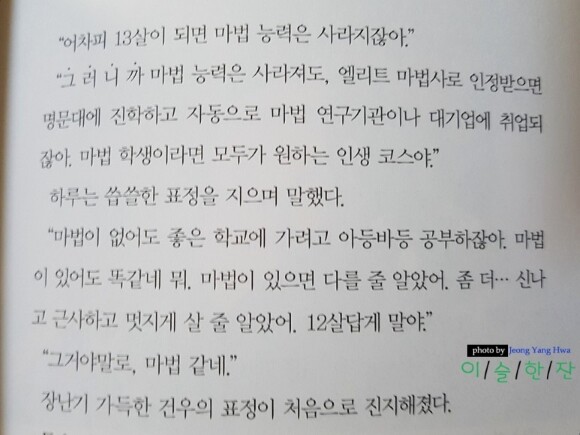 “어차피 13살이 되면 마법 능력은 사라지잖아.”
“그러니까 마법 능력은 사라져도, 엘리트 마법사로 인정받으면
명문대에 진학하고 자동으로 마법 연구기관이나 대기업에 취업되
잖아. 마법 학생이라면 모두가 원하는 인생 코스야.”
하루는 씁쓸한 표정을 지으며 말했다.
“마법이 없어도 좋은 학교에 가려고 아등바등 공부하잖아. 마법
이 있어도 똑같네 뭐. 마법이 있으면 다를 줄 알았어. 좀 더… 신나
고 근사하고 멋지게 살 줄 알았어. 12살답게 말야.”
“그거야말로, 마법 같네.”
장난기 가득한 건우의 표정이 처음으로 진지해졌다.
photo by Jeong Yang Hwa
이/슬/한/잔